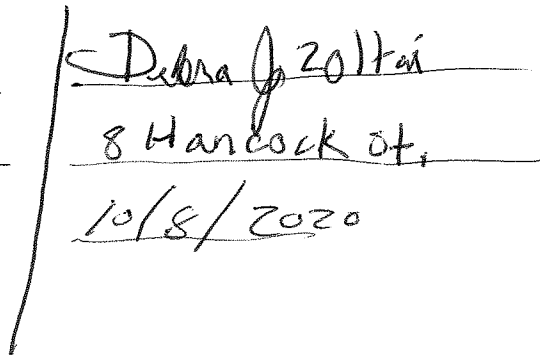 Debra Jo Zoltai
8 Hancock St.
10/8/2020